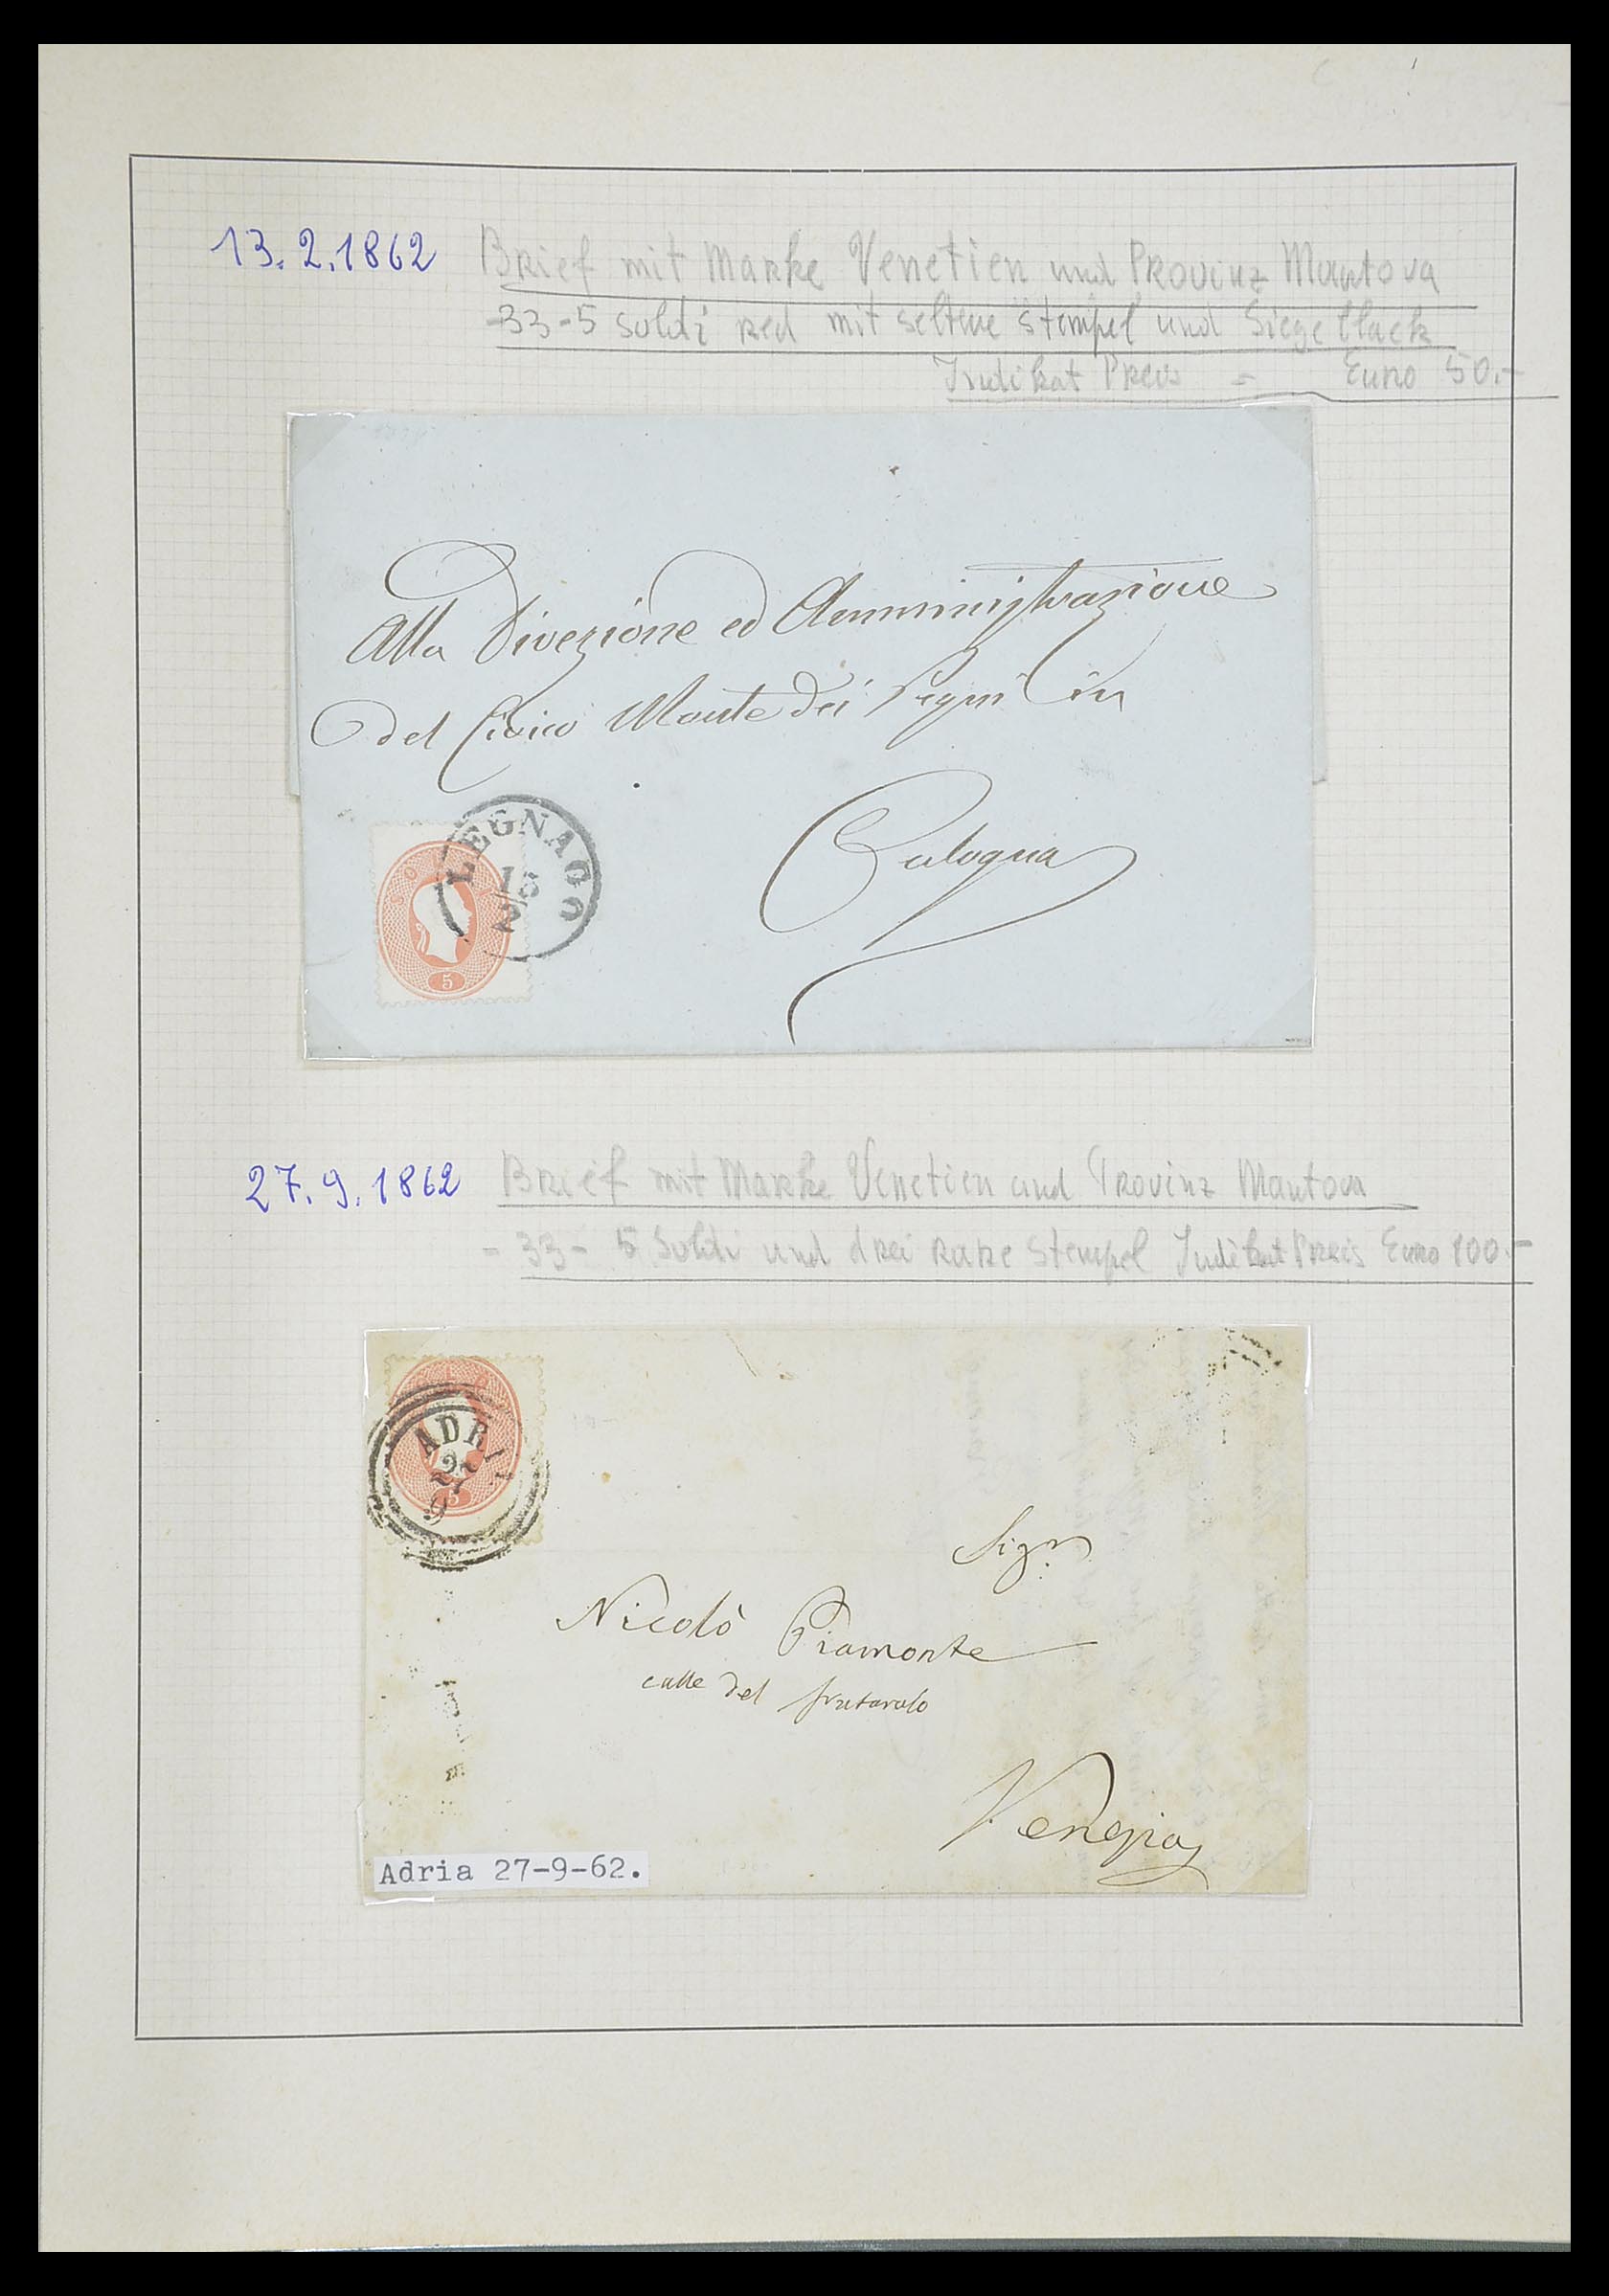 13.2.1862 Brief mit Marke Venetien und Provinz Mantova
-33-5 soldi red mit seltene stempel und Siegellack
Indikat Preis = Euro 50.-
Alla Direzione ed Amministrazione
del Civico Monte dei Pegni in
Cologna
LEGNAGO
2
5
27.9.1862 Brief mit Marke Venetien und Provinz Mantova
-33- 5 Soldi und drei rare stempel Indikat Preis Euro 100.-
ADRIA
27
9
5
Sigr
Nicolò Piamonte
calle del frutarolo
Venezia
Adria 27-9-62.